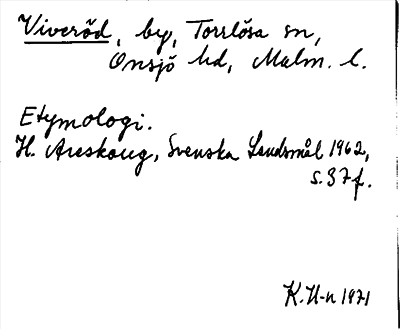 Viveröd, by, Torrlösa sn,
Onsjö hd, Malm. l.
Etymologi.
H. Areskoug, Svenska Landsmål 1962,
s. 37f.
K. H-n 1971